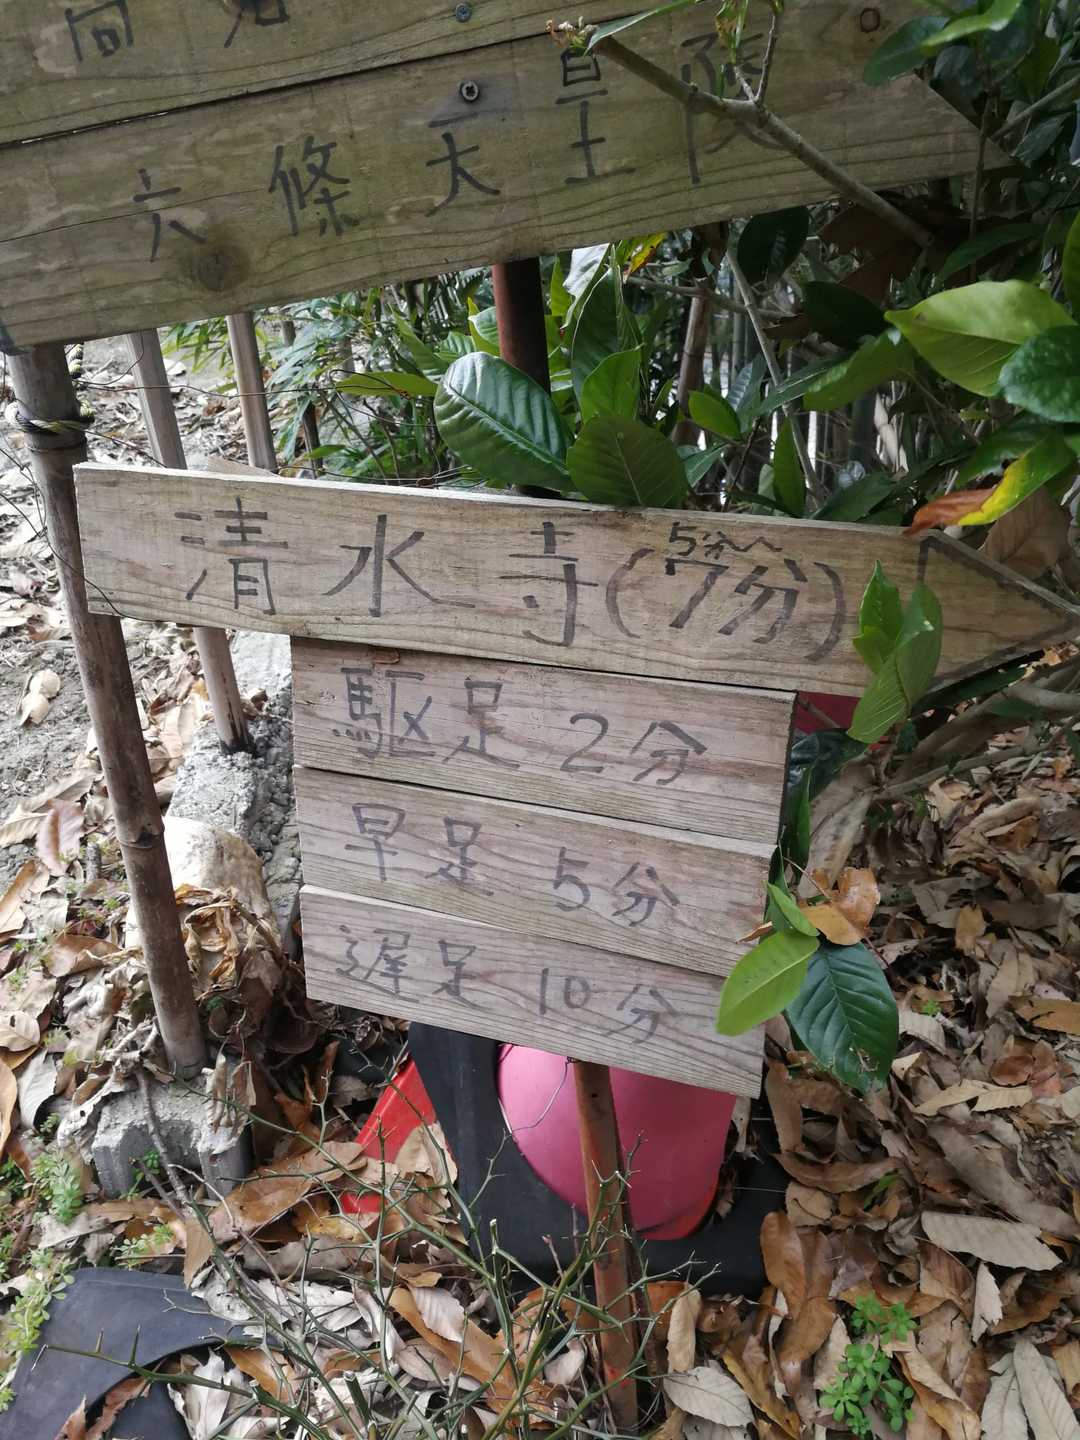 六條天皇陵
清水寺(5分〜7分)
駆足 2分
早足 5分
遅足 10分